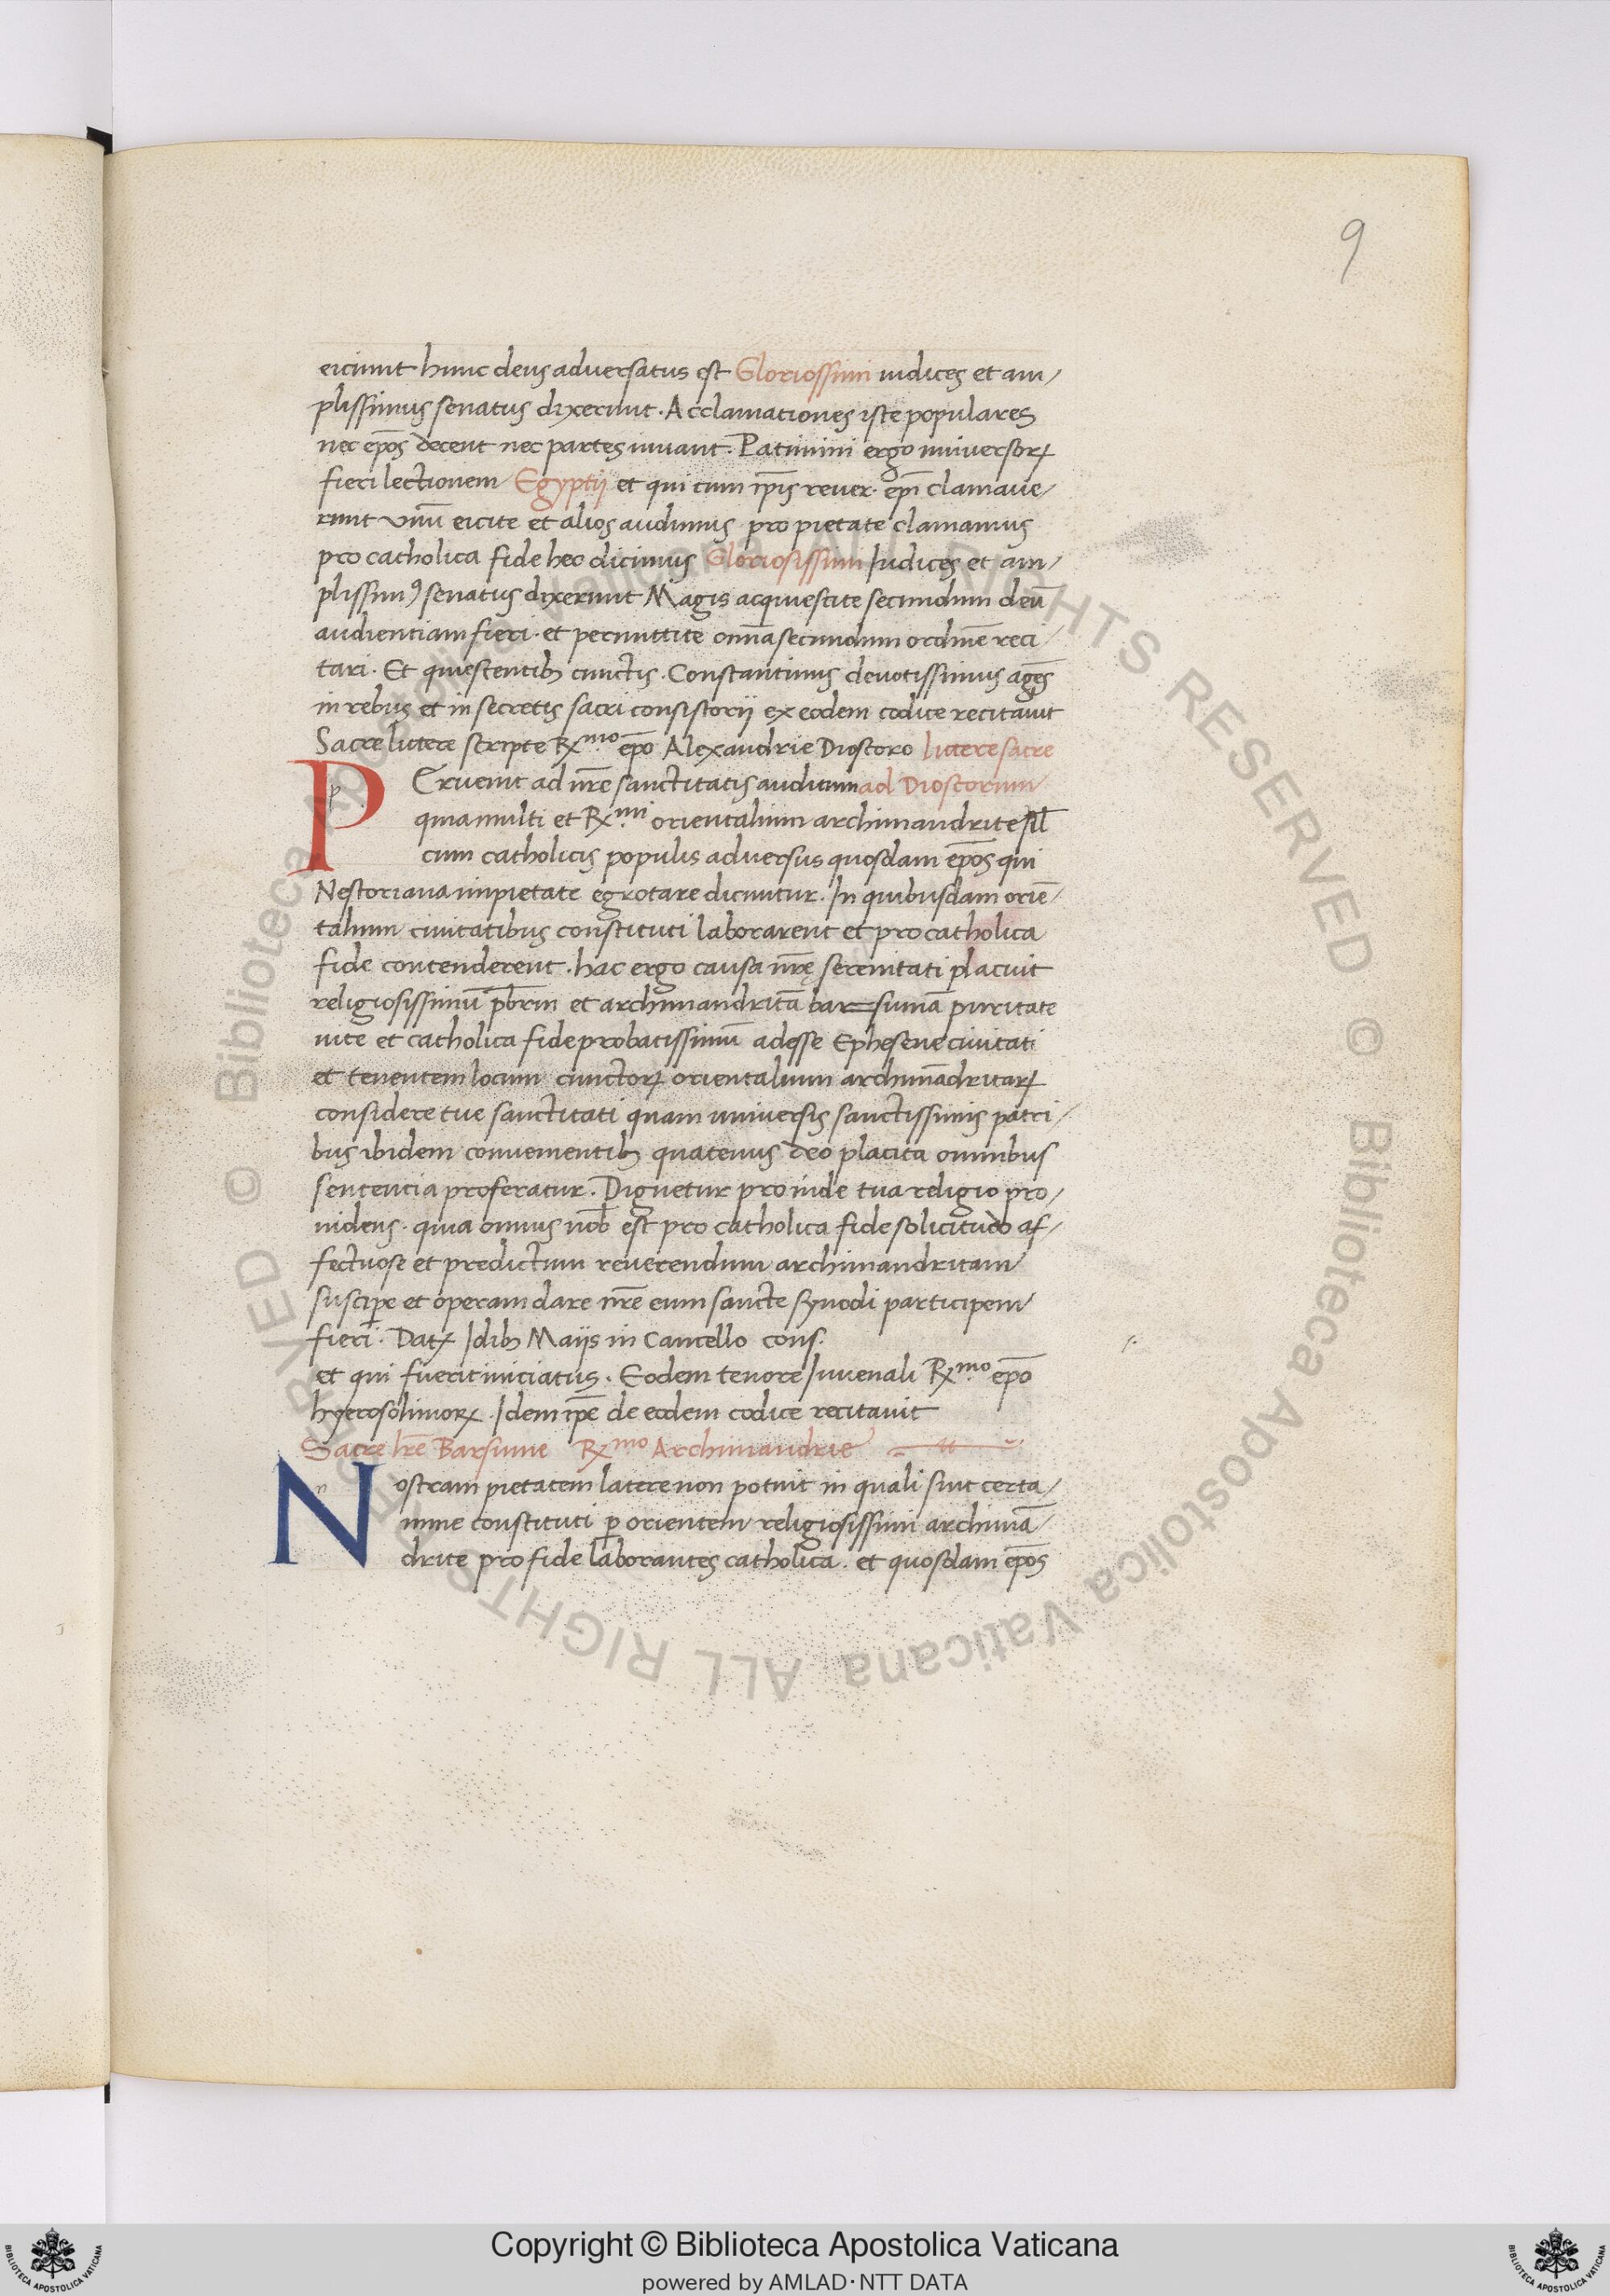 9
eiciunt hunc deus adversatus est Gloriossimi iudices et am/
plissimus senatus dixerunt. Acclamationes iste populares
nec ep̄os decent nec partes iuvant. Patimini ergo universoꝝ
fieri lectionem Egyptij et qui cum ip̄is rever. ep̄i clamave/
runt unū eicite et alios audimus pro pietate clamamus
pro catholica fide hec dicimus Gloriosissimi Iudices et am/
plissimꝰ senatus dixerunt Magis acquiescite secundum deū
audientiam fieri. et permittite om̄a secundum ordinē reci/
tari. Et quiescentib; cunctis. Constantinus devotissimus agēs
in rebus et in secretis sacri consistorij ex eodem codice recitavit
Sacre littere scripte Rx.mo ep̄o Alexandrie Dioscoro littere sacre
PErvenit ad nr̄e sanctitatis auditum ad Dioscorum
quia multi et Rx.mi orientalium archimandrite sil̄
cum catholicis populis adversus quosdam ep̄os qui
Nestoriana impietate egrotare dicuntur. In quibusdam oriē/
talium civitatibus constituti laborarent et pro catholica
fide contenderent. hac ergo causa nr̄ę serenitati placuit
religiosissimū pb̄rm et archimandritā bar=sumā puritate
vite et catholica fide probatissimū adesse Ephesene civitati
et tenentem locum cunctoꝝ orientalium archimādritaꝝ
considere tue sanctitati quam universis sanctissimis patri/
bus ibidem convenientib; quatenus deo placita omnibus
sententia proferatur. Dignetur proinde tua religio pro/
videns. quia omnis nob̄ est pro catholica fide solicitudo af/
fectuose et predictum reverendum archimandritam
suscipꝑe et operam dare nr̄e eum sancte synodi participem
fieri. Datꝝ Idib; Maijs in Cancello cons.
et qui fuerit iniciatus. Eodem tenore Iuvenali Rx.mo ep̄o
hyerosolimoꝝ. Idem ip̄e de eodem codice recitavit
Sacre lr̄e Barsume Rx.mo Archimandrie
Nostram pietatem latere non potuit in quali sint certa/
mine constituti ꝑ orientem religiosissimi archimā/
drite pro fide laborantes catholica. et quosdam ep̄os
© Biblioteca Apostolica Vaticana ALL RIGHTS RESERVED © Biblioteca Apostolica Vaticana ALL RIGHTS RESERVED
Copyright © Biblioteca Apostolica Vaticana
powered by AMLAD·NTT DATA
BIBLIOTECA APOSTOLICA VATICANA
BIBLIOTECA APOSTOLICA VATICANA